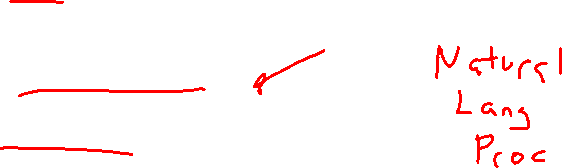 Natural
Lang
Proc